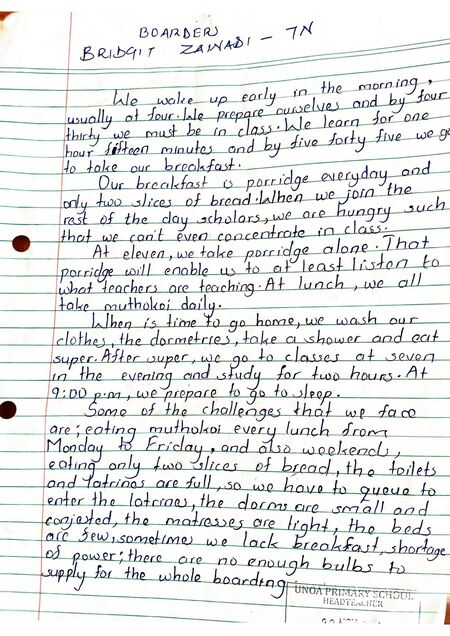 BOARDERS
BRIDGIT ZAWADI - 7N
We wake up early in the morning,
usually at four. We prepare ourselves and by four
thirty we must be in class. We learn for one
hour fifteen minutes and by five forty five we go
to take our breakfast.
Our breakfast is porridge everyday and
only two slices of bread. When we join the
rest of the day scholars, we are hungry such
that we can't even concentrate in class.
At eleven, we take porridge alone. That
porridge will enable us to at least listen to
what teachers are teaching. At lunch, we all
take muthokoi daily.
When is time to go home, we wash our
clothes, the dormetries, take a shower and eat
super. After super, we go to classes at seven
in the evening and study for two hours. At
9:00 p.m, we prepare to go to sleep.
Some of the challenges that we face
are; eating muthokoi every lunch from
Monday to Friday, and also weekends,
eating only two slices of bread, the toilets
and latrines are full, so we have to queue to
enter the latrines, the dorms are small and
conjested, the matresses are light, the beds
are few, sometime we lack breakfast, shortage
of power; there are no enough bulbs to
supply for the whole boarding
UNOA PRIMARY SCHOOL
HEADTEACHER